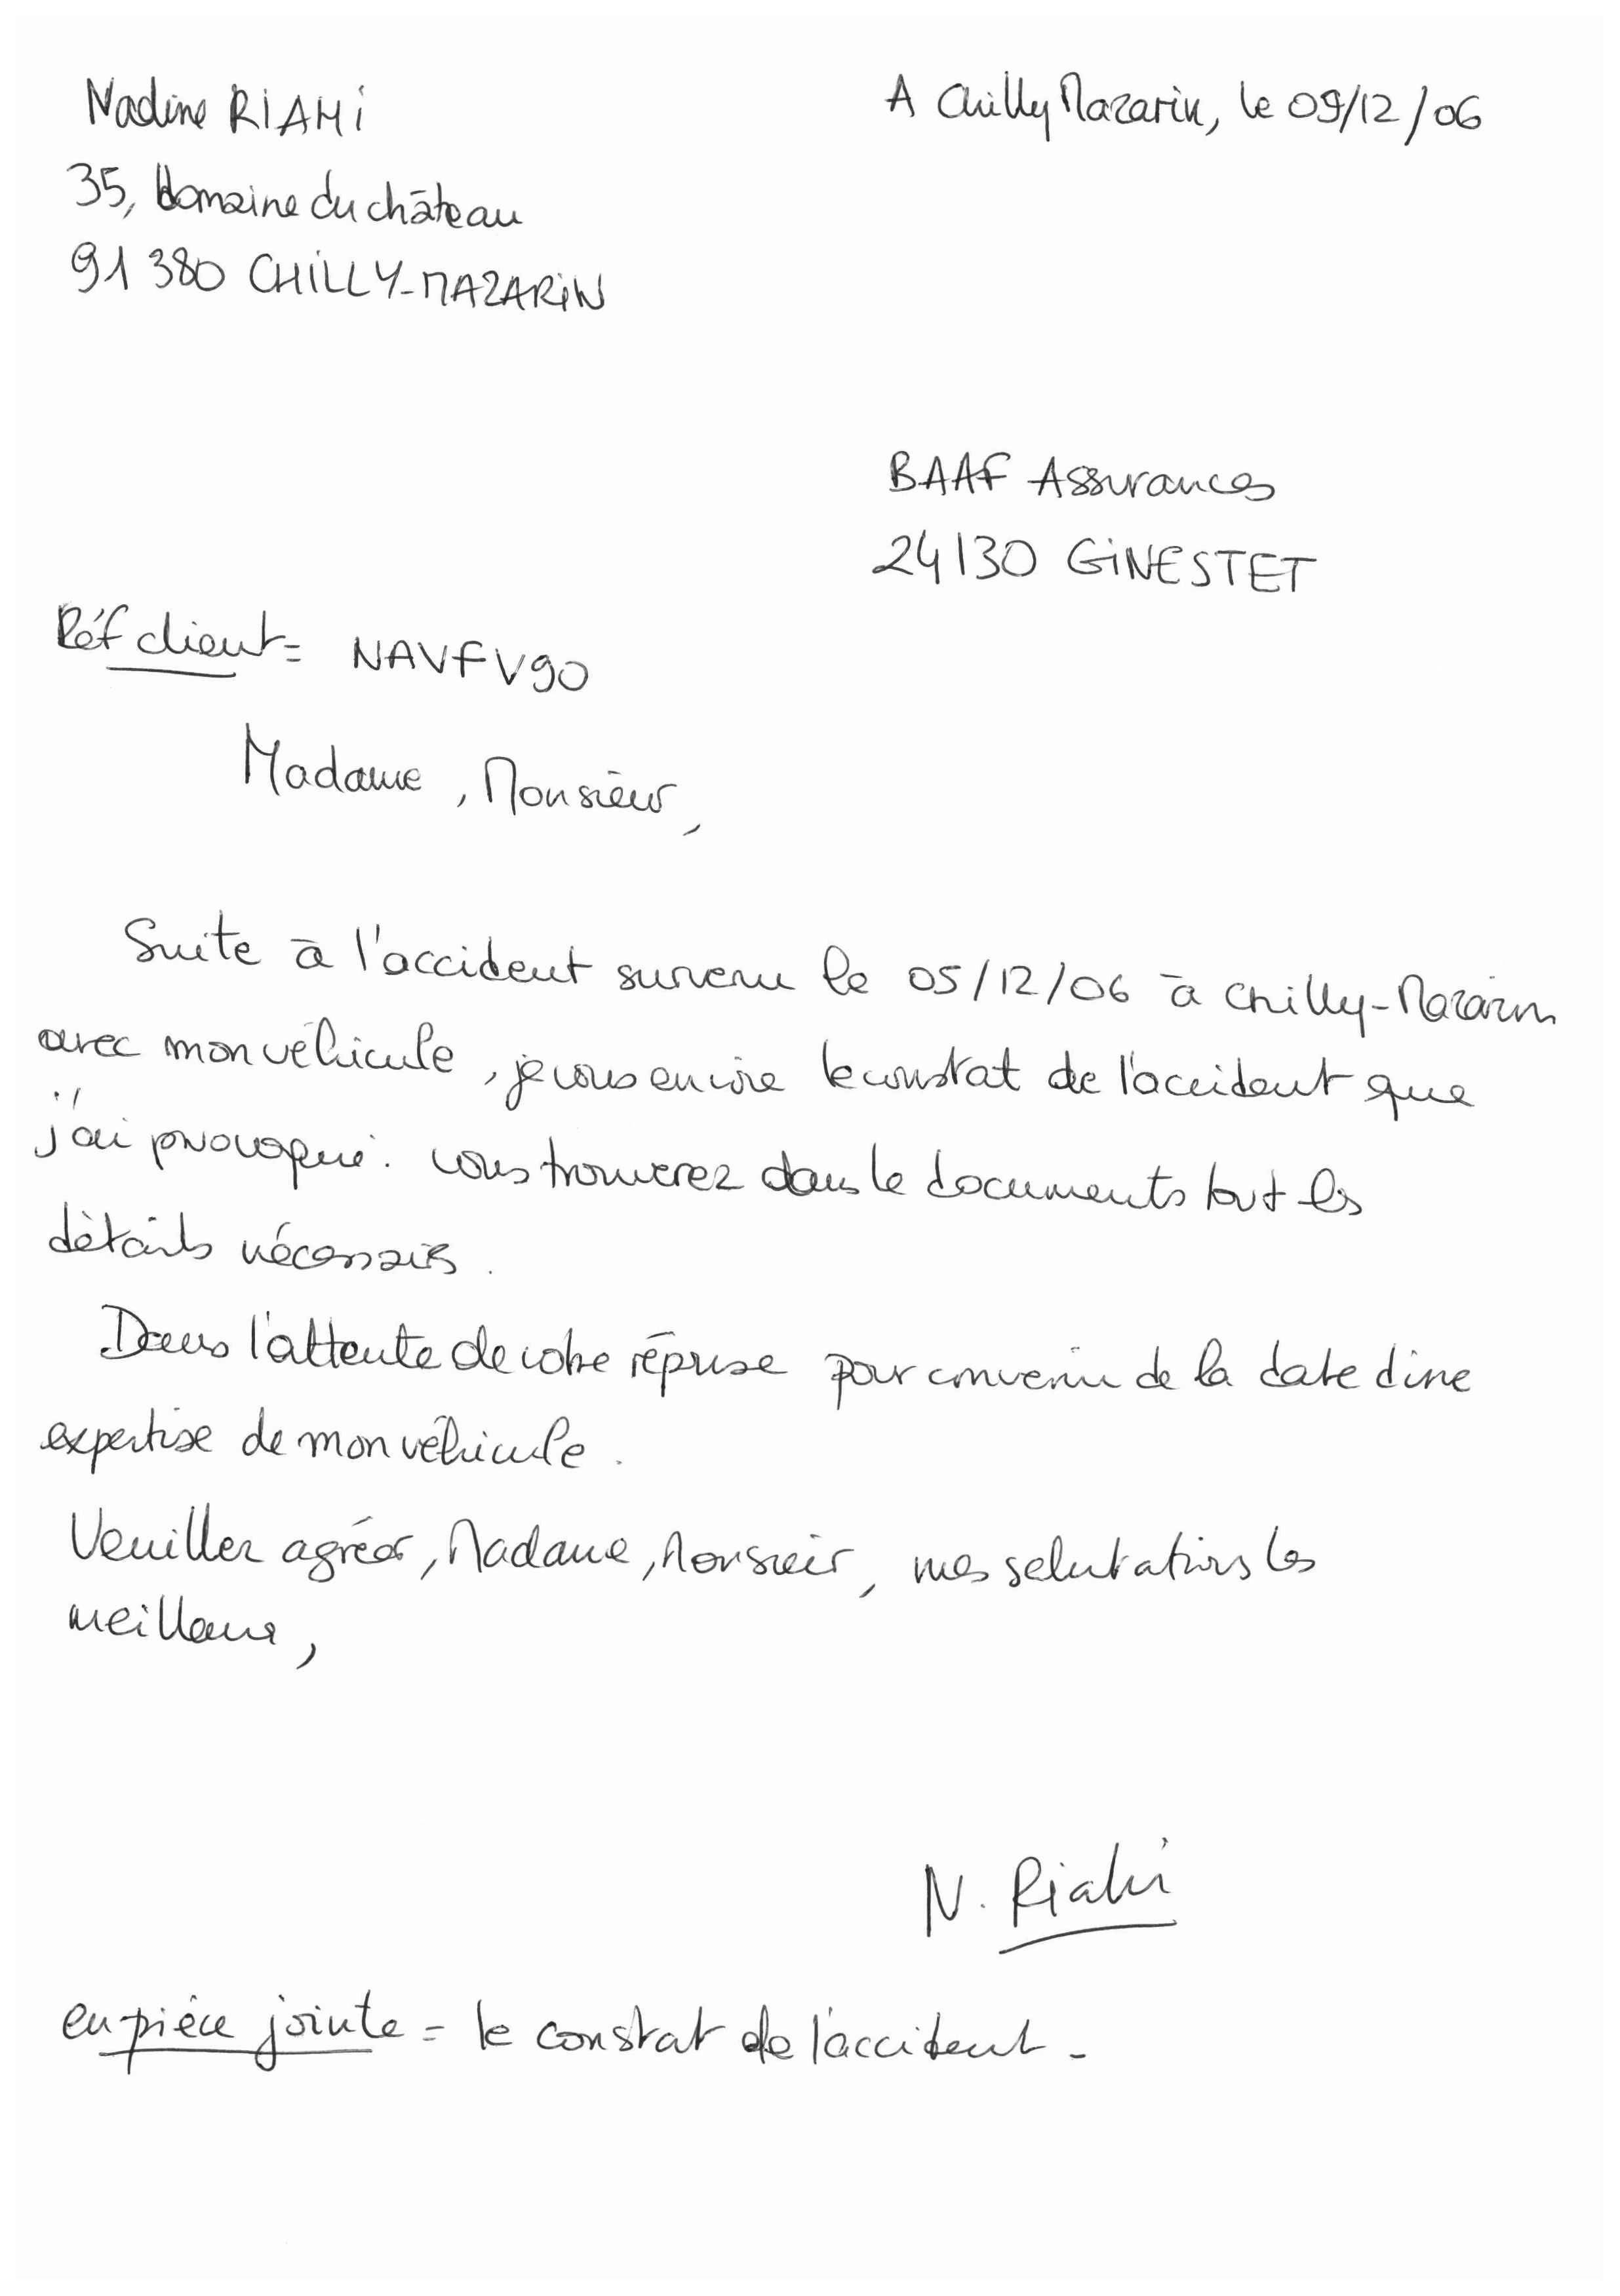 Nadine RIAHI
A Chilly Mazarin, le 09/12/06
35, domaine du château
91 380 CHILLY-MAZARIN
BAAF Assurances
24130 GINESTET
Réf client = NAVFV90
Madame, Monsieur,
Suite à l'accident survenu le 05/12/06 à Chilly-Mazarin
avec mon véhicule, je vous envoie le constat de l'accident que
j'ai provoqué. Vous trouverez dans le documents tout les
détails nécessaires.
Dans l'attente de votre réponse pour convenir de la date d'une
expertise de mon véhicule.
Veuillez agréer, Madame, Monsieur, mes salutations les
meilleurs,
N. Riahi
en pièce jointe = le constat de l'accident -